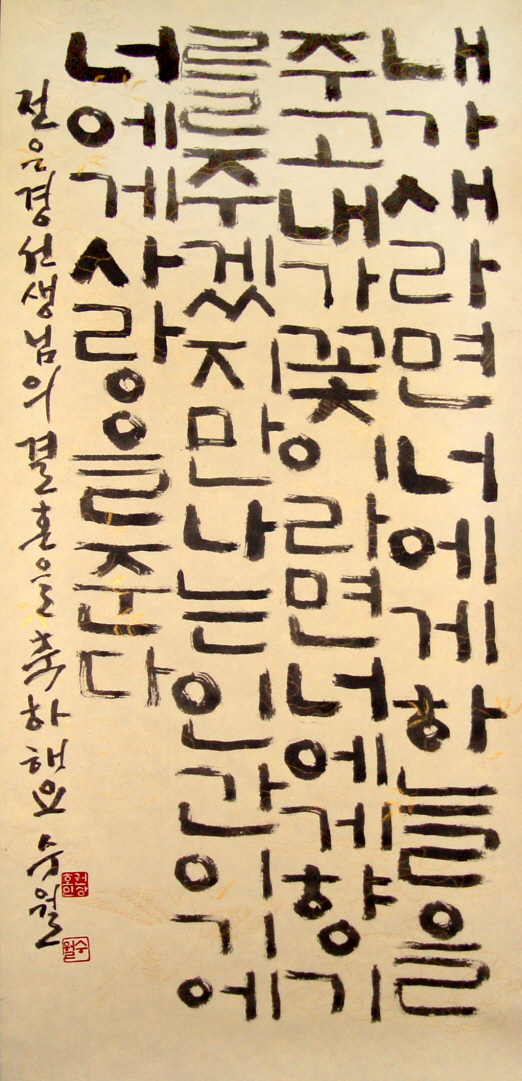 내가새라면너에게하늘을
주고내가꽃이라면너에게향기
를주겠지만나는인간이기에
너에게사랑을준다
전은경선생님의결혼을축하해요 수월
수월